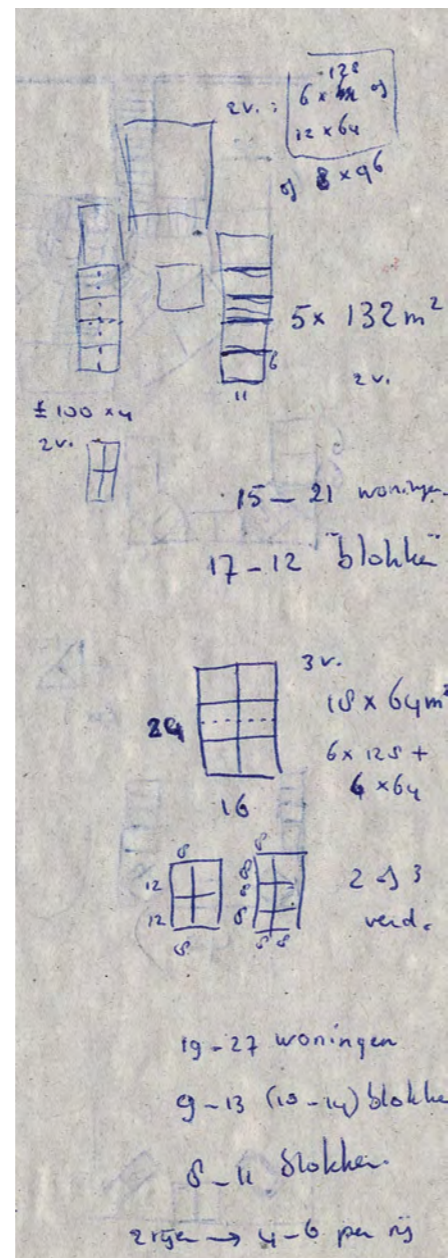 128
2v.: 6 x of
12 x 64
of 8 x 96
5 x 132 m²
6
2v.
11
± 100 x 4
2v.
15 – 21 woningen
17 – 12 "blokken"
3v.
18 x 64 m²
24
6 x 128 +
6 x 64
16
8 8
12 8 2 of 3
8
12 8 verd.
8 8 8
19 – 27 woningen
9 – 13 (10 – 14) blokken
8 – 11 blokken.
2 rijen → 4 – 6 per rij